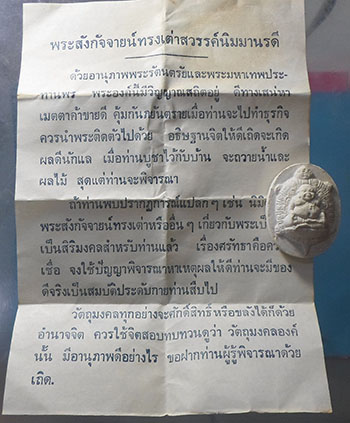 พระสังกัจจายน์ทรงเต่าสวรรค์นิมมานรดี
ด้วยอานุภาพพระรัตนตรัยและพระมหาเทพประ-
ทานพร พระองค์นี้มีวิญญาณสถิตอยู่ ดีทางเสน่ห์า
เมตตาค้าขายดี คุ้มกันภยันตรายเมื่อท่านจะไปทำธุรกิจ
ควรนำพระติดตัวไปด้วย อธิษฐานจิตให้ดีเถิดจะเกิด
ผลดีนักแล เมื่อท่านบูชาไว้กับบ้าน จะถวายน้ำและ
ผลไม้ สุดแต่ท่านจะพิจารณา
ถ้าท่านพบปรากฏการณ์แปลก ๆ เช่น
พระสังกัจจายน์ทรงเต่าหรืออื่น ๆ เกี่ยวกับพระ
เป็นสิริมงคลสำหรับท่านแล้ว เรื่องศรัทธาคือ
เชื่อ จงใช้ปัญญาพิจารณาหาเหตุผลให้ดีท่านจะมีของ
ดีจริงเป็นสมบัติประดับกายท่านสืบไป
วัตถุมงคลทุกอย่างจะศักดิ์สิทธิ์ หรือขลังได้ก็ด้วย
อำนาจจิต ควรใช้จิตสอบทบทวนดูว่า วัตถุมงคลองค์
นั้น มีอานุภาพดีอย่างไร ขอฝากท่านผู้รู้พิจารณาด้วย
เถิด.